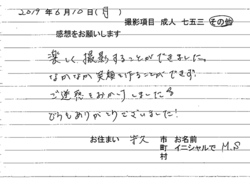 2019年6月10日(月)
撮影項目 成人 七五三 その他
感想をお願いします
楽しく撮影することができました。
なかなか笑顔とけることができず
ご迷惑をおかけしました
どうもありがとうございました!
お住まい 市 お名前
町 イニシャルで M.S
村